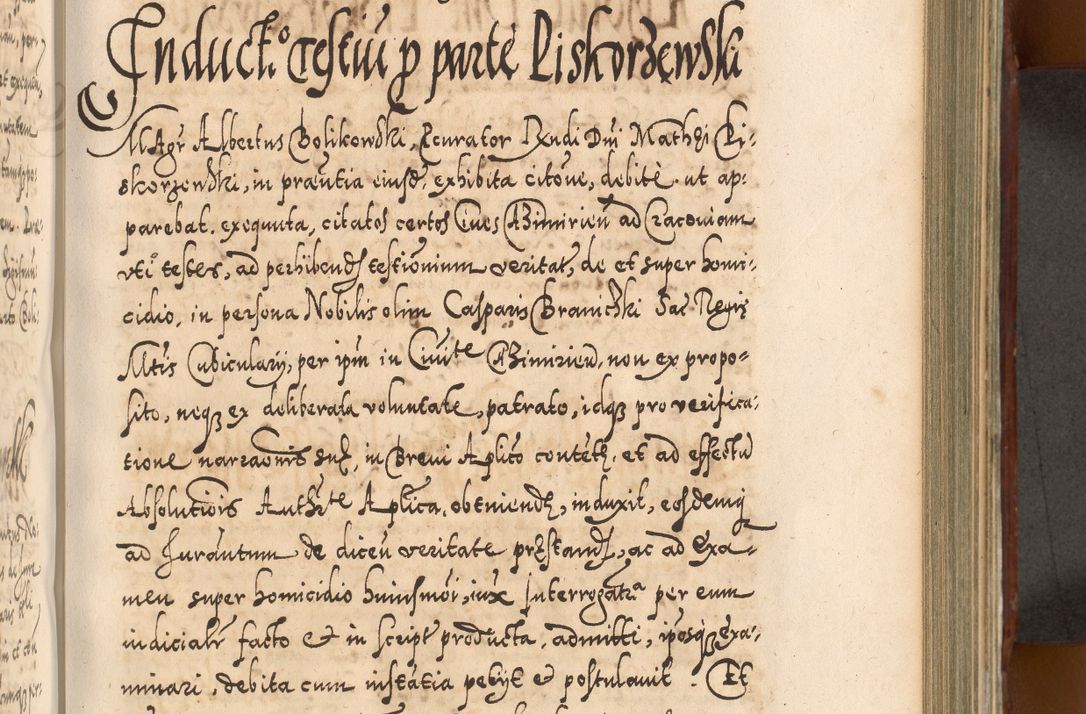 Induct: testiũ p parte Piskorzewski
MAgr Albertus Bolikowski, Pcurator Rndi Dni Mathęi Pi-
skorzewski, in præntia eiusd, exhibita citoñe, debitè ut ap-
parebat, exequuta, citatos certos Ciues CaZimirieñ ad Cracouiam
vti testes, ad perhibend testimonium veritat, de et super homi-
cidio, in persona Nobilis olim Casparis Braniczki Sac Regię
Mtis Cubicularij, per ipm in Ciuite CaZimirien, non ex propo-
sito, neqz ex deliberata voluntate, patrato, idqz pro verifica-
tione narraonis suæ, in Breui Aplico content, et ad effectu
Absolutiois Authte Aplica, obtinend, induxit, eosdemq
ad Jurantum de dicen veritate præstand, ac ad Exa-
men super homicidio huiusmoi, iux Interrogatra per eum
iudicialr facto et in script producta, admitti, ipsosqz Exa-
minari, debita cum instătia petijt et postulauit. Et